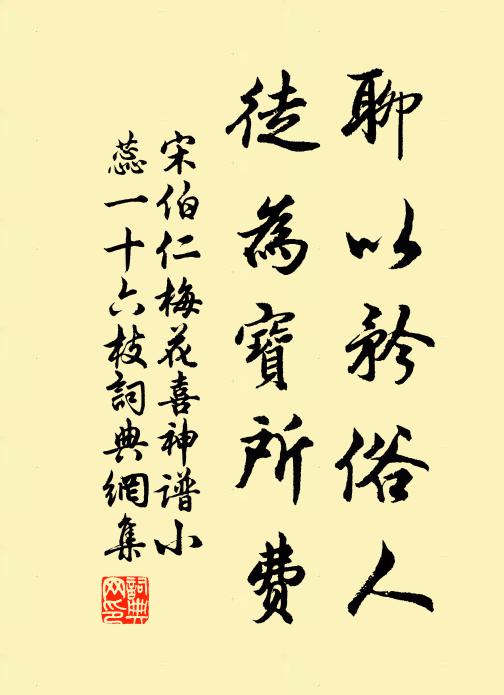 聊以矜俗人
徒為寶所費
宋伯仁梅花喜神譜小
蕊一十六枝詞典網集
詞典網印